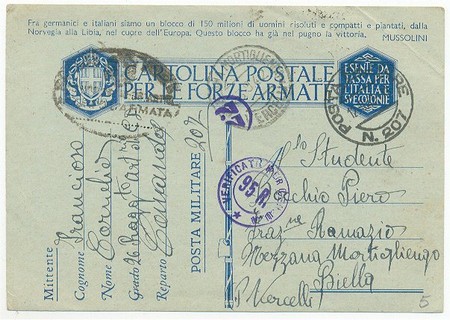 Fra germanici e italiani siamo un blocco di 150 milioni di uomini risoluti e compatti e piantati, dalla
Norvegia alla Libia, nel cuore dell'Europa. Questo blocco ha già nel pugno la vittoria. MUSSOLINI
CARTOLINA POSTALE
PER LE FORZE ARMATE
ESENTE DA
TASSA PER
L'ITALIA E
SUE COLONIE
N. 207
22
VERIFICATO PER
95 R
Mittente
Cognome Francioso
Nome Cornelio
Grado 26 Ragg Art
Reparto Comando
POSTA MILITARE 202
Studente
Piero
Ramazio
Mezzana Mortigliengo
Biella
Vercelli
5